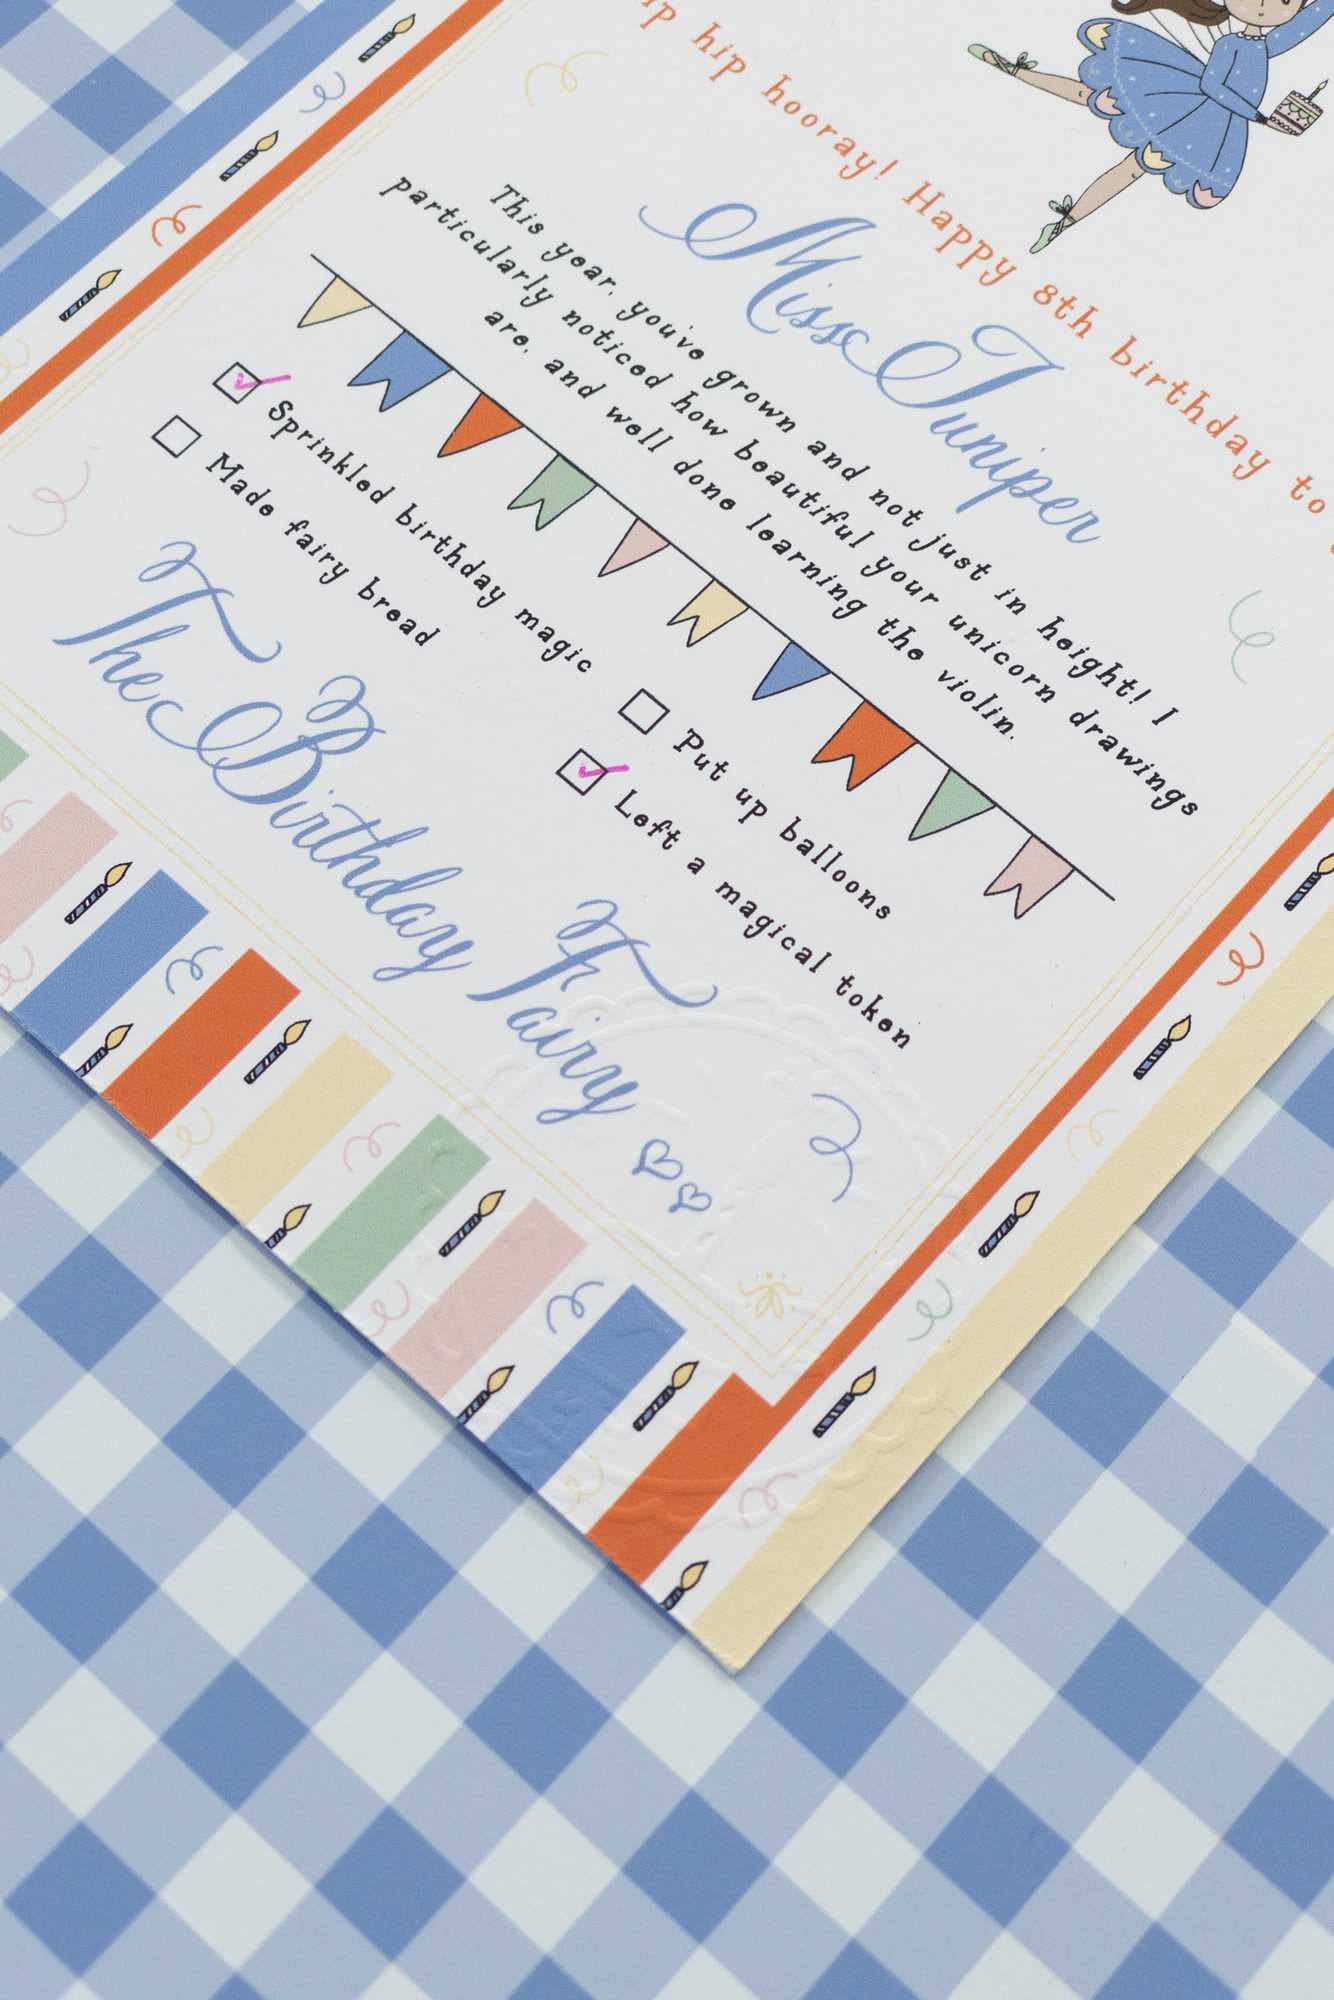 hip hooray! Happy 8th birthday to
Miss Juniper
This year, you've grown and not just in height! I
particularly noticed how beautiful your unicorn drawings
are, and well done learning the violin.
Sprinkled birthday magic
Made fairy bread
Put up balloons
Left a magical token
The Birthday Fairy